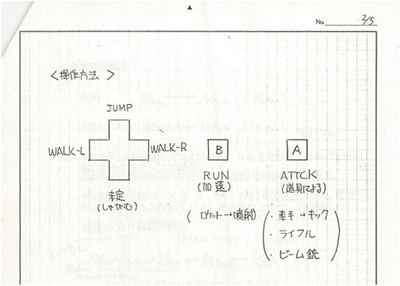 No. 2/5
<操作方法>
JUMP
WALK-L
WALK-R
B
A
RUN
(加速)
ATTCK
(道具による)
未定
(しゃがむ)
(ロケット→噴射)
・素手→キック
・ライフル
・ビーム銃